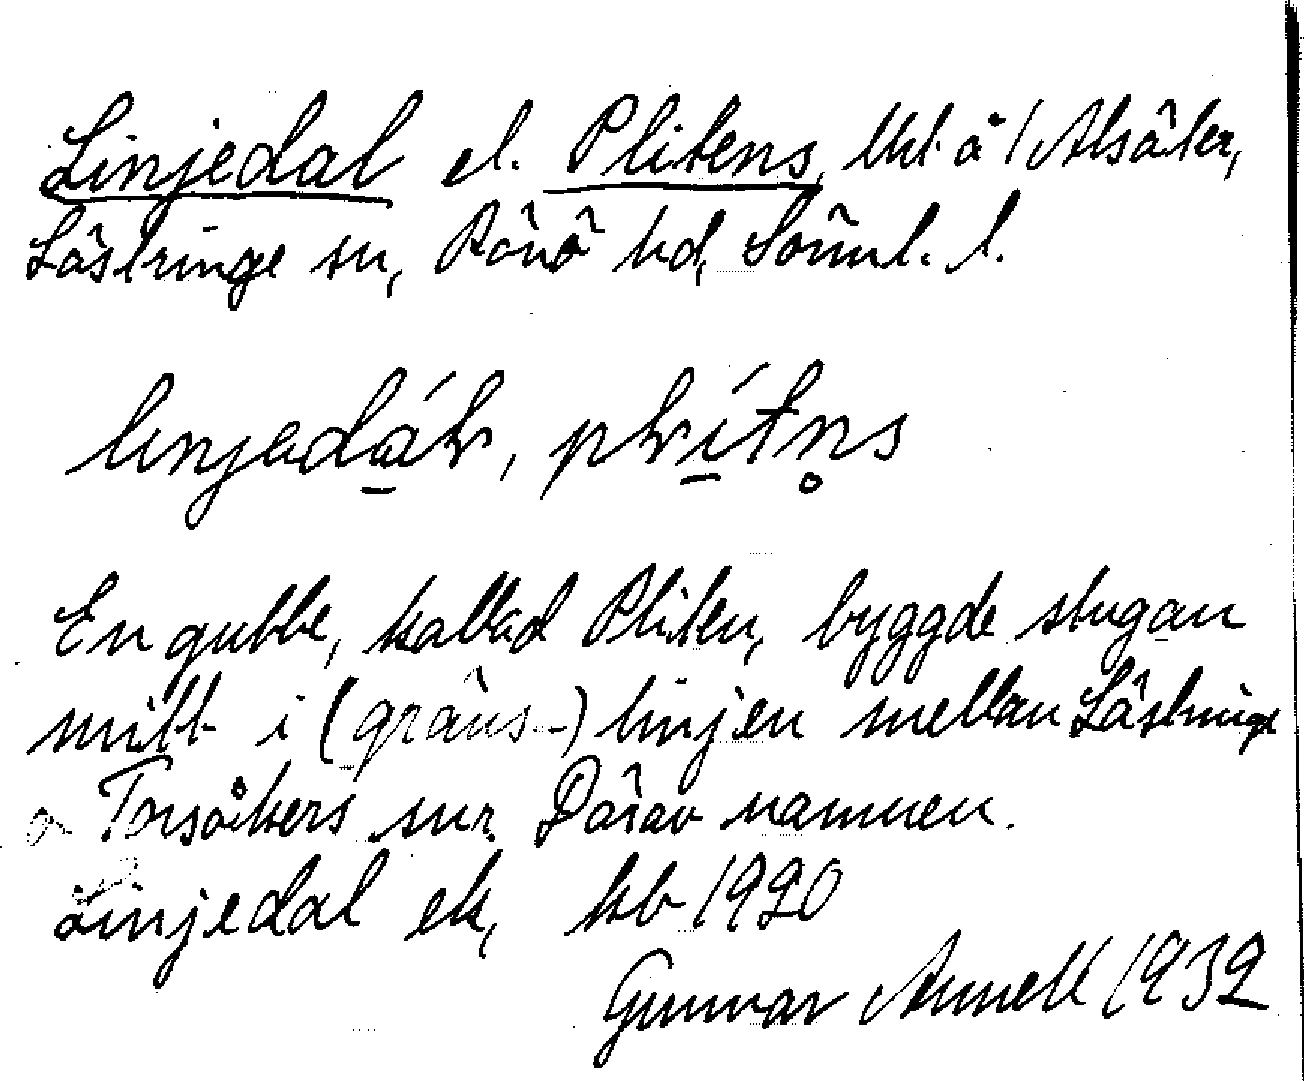 Linjedal el. Plitens, lht å /Alsäter,
Lästringe sn, Rönö hd, Söderml. l.
linjedál, plítn̥s
En gubbe, kallad Pliten, byggde stugan
mitt i (gräns-) linjen mellan Lästringe
o Torsåkers snr. Därav namnen.
Linjedal ek, kb 1920
Gunnar Annell 1932